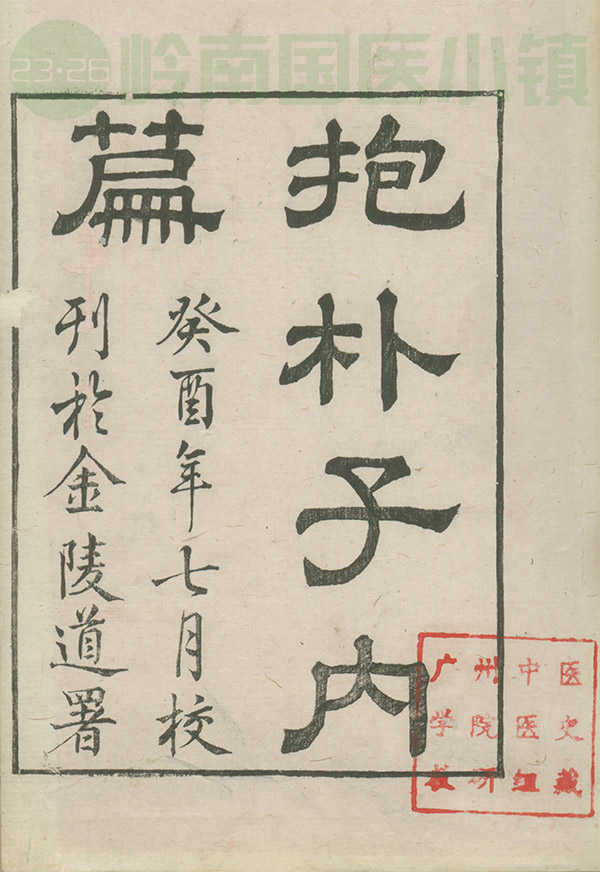 23·26 岭南国医小镇
抱朴子内
篇
癸酉年七月校
刊於金陵道署
广州中医
学院医史
教研组藏